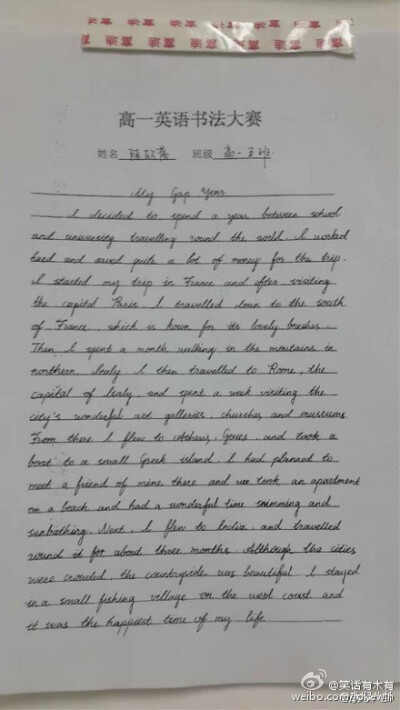 高一英语书法大赛
姓名 班级 高一五班
My Gap Year
I decided to spend a year between school
and university travelling round the world. I worked
hard and saved quite a lot of money for the trip.
I started my trip in France and after visiting
the capital Paris, I travelled down to the south
of France which is known for its lovely beaches.
Then I spent a month walking in the moutains in
northern Italy. I then travelled to Rome, the
capital of Italy, and spent a week visiting the
city's wonderful art galleries, churches and museums
From there I flew to Athens, and took a
boat to a small Greek island. I had planned to
meet a friend of mine there and we took an apartment
on a beach and had a wonderful time swimming and
sunbathing. Next, I flew to India, and travelled
round it for about three months. Although the cities
were crowded, the countryside was beautiful. I stayed
in a small fishing village on the west coast and
it was the happiest time of my life
@笑话有木有
weibo.com/